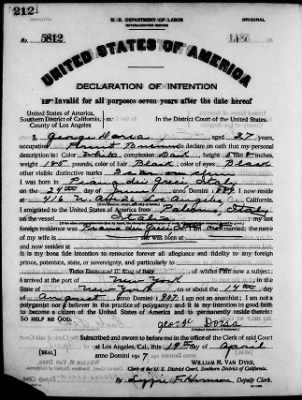 212
U. S. DEPARTMENT OF LABOR
NATURALIZATION SERVICE
ORIGINAL
No. 5812
UNITED STATES OF AMERICA
DECLARATION OF INTENTION
Invalid for all purposes seven years after the date hereof
United States of America,
Southern District of California, ss:
County of Los Angeles
In the District Court of the United States.
I, George Doria, aged 27 years,
occupation Fruit Business, declare on oath that my personal
description is: Color White, complexion Dark, height 5 feet 8 inches,
weight 185 pounds, color of hair Black, color of eyes Black
other visible distinctive marks
I was born in Piana dei Greci Italy
on the 24th day of June, anno Domini; I now reside
at 416 Los Angeles, Cal.
I emigrated to the United States of America from Palermo, Italy
on the vessel; my last
foreign residence was Piana dei Greci married; the name
of my wife is; she was born at
and now resides at
It is my bona fide intention to renounce forever all allegiance and fidelity to any foreign
prince, potentate, state, or sovereignty, and particularly to
Victor Emmanuel III, King of Italy, of whom I am now a subject;
I arrived at the port of New York, in the
State of New York, on or about the 14th day
of August, anno Domini 1907; I am not an anarchist; I am not a
polygamist nor a believer in the practice of polygamy; and it is my intention in good faith
to become a citizen of the United States of America and to permanently reside therein:
SO HELP ME GOD.
George Doria
Subscribed and sworn to before me in the office of the Clerk of said Court
at Los Angeles, Cal., this 19th day of April
[SEAL]
anno Domini 1917.
WILLIAM M. VAN DYKE,
Clerk of the U. S. District Court, Southern District of California.
By, Deputy Clerk.